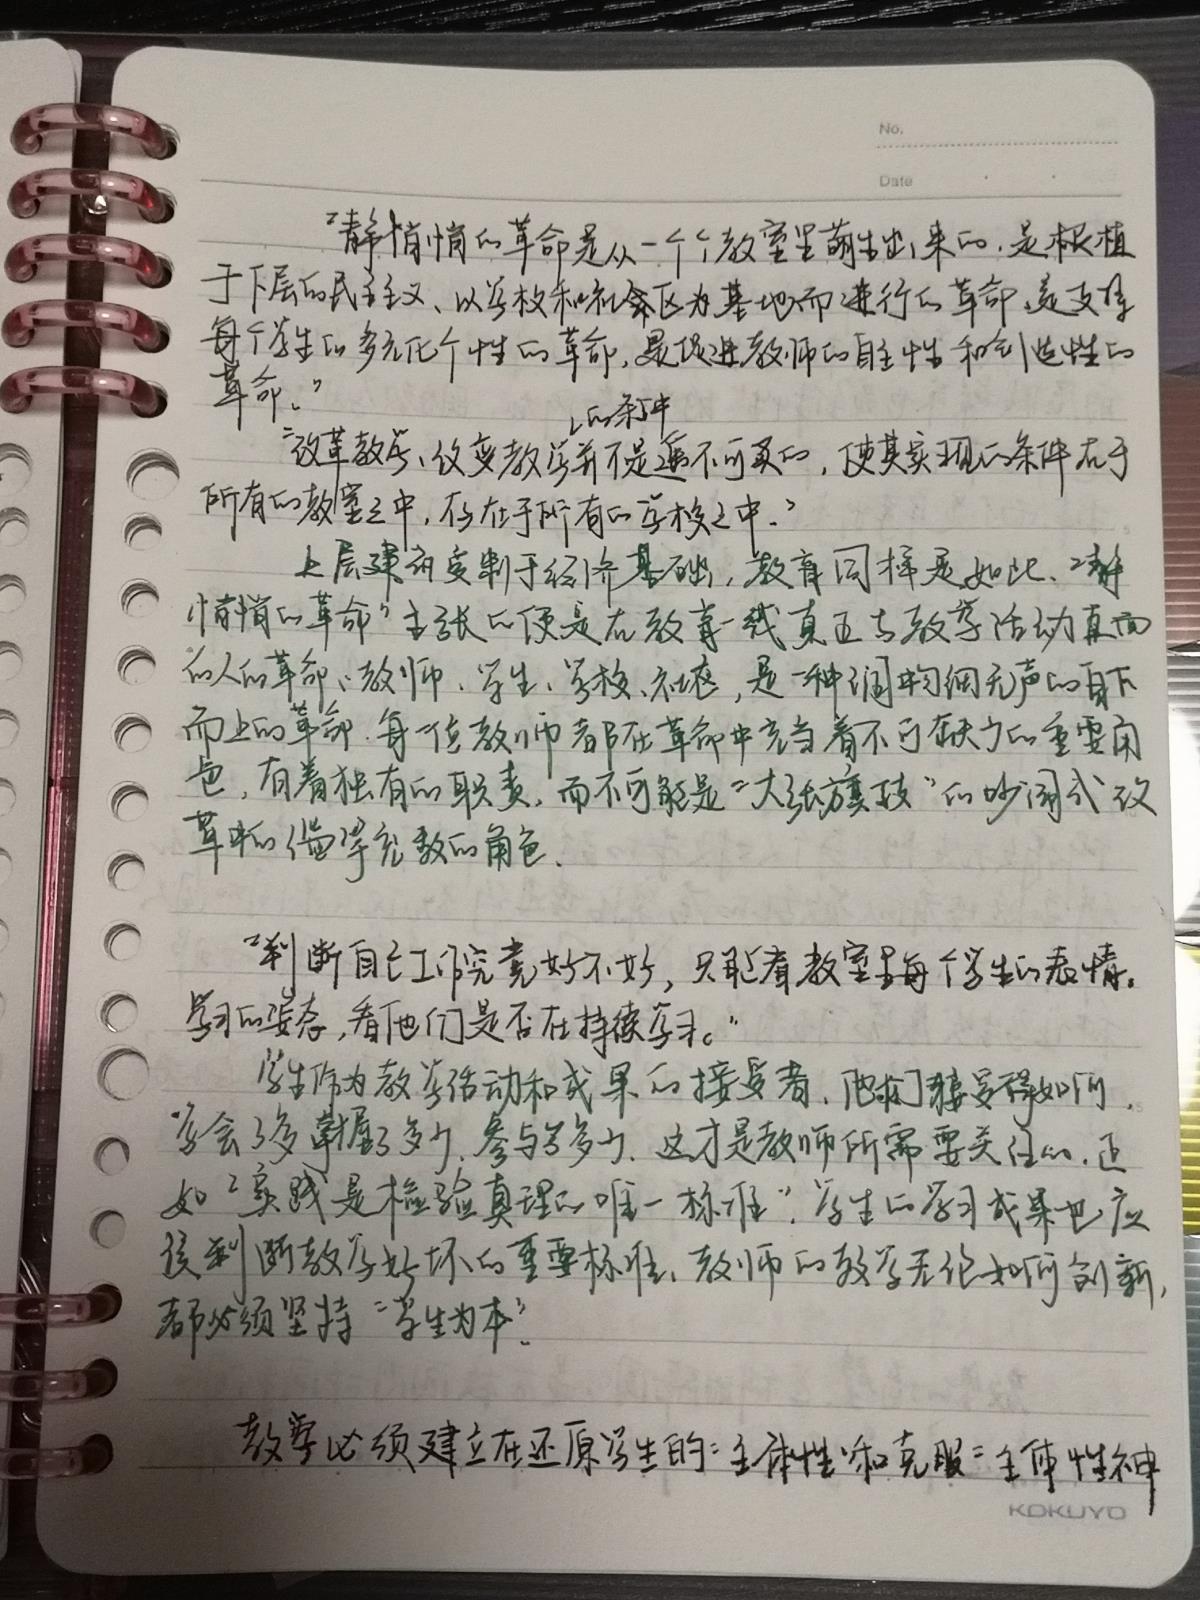 No.
Date
“静悄悄的革命是从一个个教室里萌生出来的,是根植
于下层的民主主义、以学校和社区为基地而进行的革命,是支持
每个学生的多元化个性的革命,是促进教师的自主性和创造性的
革命。”
的条件
“改革教学、改变教学并不是遥不可及的,使其实现的条件在于
所有的教室之中,存在于所有的学校之中.”
上层建筑受制于经济基础,教育同样是如此、“静
悄悄的革命”主张的便是在教育一线真正与教学活动直面
的人的革命、教师、学生、学校、社区,是一种润物细无声的自下
而上的革命.每一位教师都在革命中充当着不可或缺的重要角
色,有着独有的职责,而不可能是“大张旗鼓”的 式改
革中的滥竽充数的角色.
“判断自己工作究竟好不好,只能看教室里每个学生的表情。
学习的姿态,看他们是否在持续学习。”
学生作为教学活动和成果的接受者,他们接受得如何,
学会了多 掌握了多少,参与了多少,这才是教师所需要关注的,正
如“实践是检验真理的唯一标准”,学生的学习成果也应
该判断教学好坏的重要标准,教师的教学无论如何创新,
都必须坚持“学生为本”.
教学必须建立在还原学生的“主体性”和克服“主体性神
KOKUYO